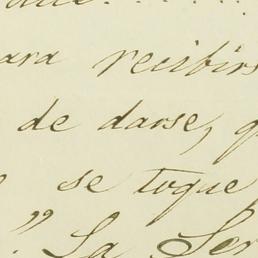 para recibirs
de darse, q
se toque
" La Ser